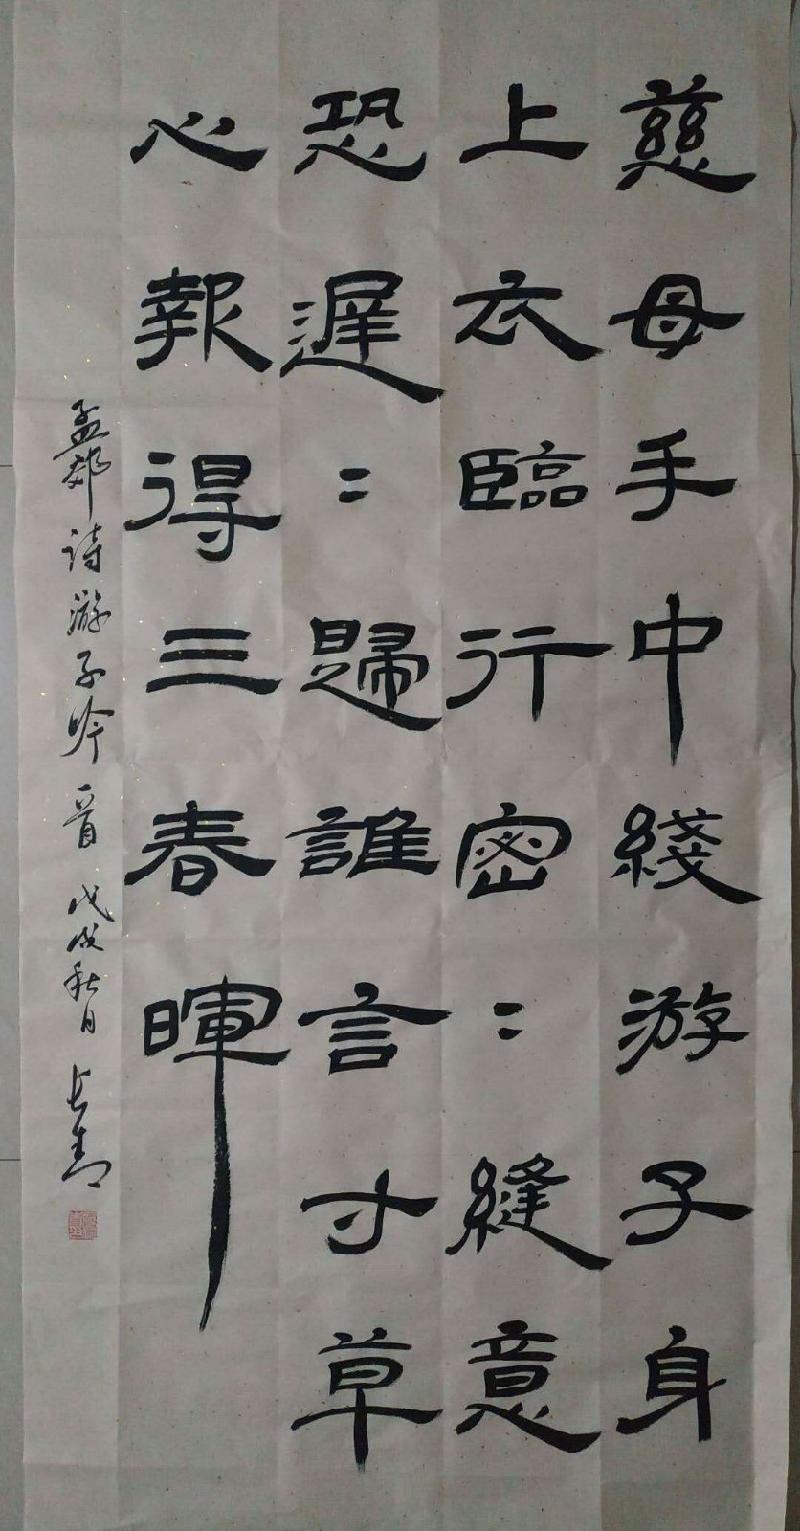 慈母手中綫游子身
上衣臨行密〻縫意
恐遲〻歸誰言寸草
心報得三春暉
孟郊诗游子吟一首 戊戌秋日